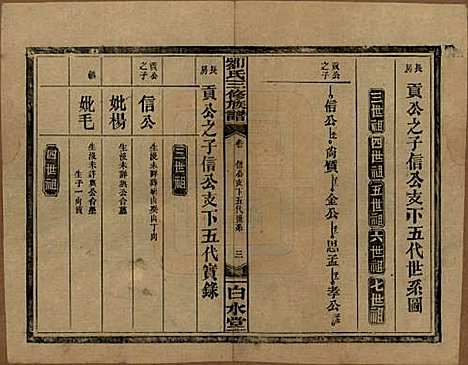 長房
貢公之子信公支下五代世系圖
三世祖 四世祖 五世祖 六世祖 七世祖
貢公之子
信公 尚質 金公 思孟 孝公
劉氏三修族譜
卷
信公支下五代世系
三
白水堂
長房
貢公之子信公支下五代實錄
三世祖
貢公之子
信公
生歿未詳葬
妣楊
生歿未詳與公合墓
四世祖
妣毛
生歿未詳與公合墓
生子一